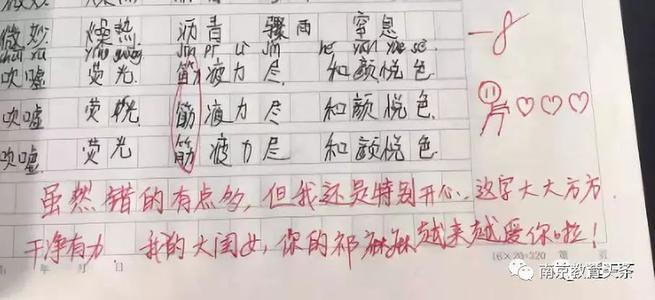 微妙 燥热 沥青 骤雨 窒息 -8
ying guang jin pi li jin he yan yue se
吹嘘 荧光 筋液力尽 和颜悦色
吹嘘 荧 筋液力尽 和颜悦色
吹嘘 荧光 筋疲力尽 和颜悦色
虽然错的有点多，但我还是特别开心，这字大大方方
干净有力。我的大闺女，你的祁麻麻越来越爱你啦！
年 月 日 16×20=320 第 页
南京教育头条